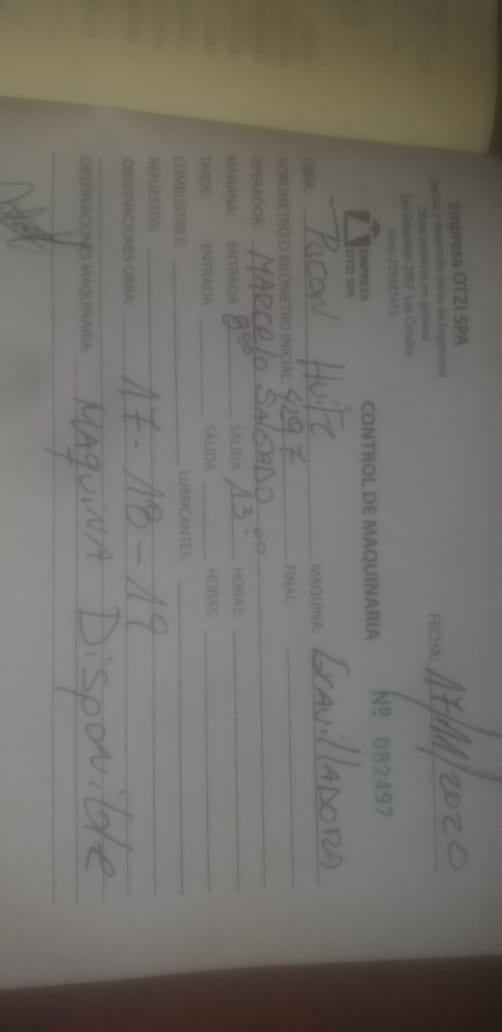 Empresa OTZI SPA
y desarrollo obras de Ingenieria
Obras publicas en general
San Sebastian 2957 Las Condes
Fono 225387413
EMPRESA
OTZI SPA
FECHA: 17/11/2020
CONTROL DE MAQUINARIA
Nº 082497
OBRA: PUCON HUIFE MAQUINA: GRAVILLADORA
HOROMETRO O KILOMETRO INICIAL: 4297 FINAL:
OPERADOR: MARCELO SALGADO
MAÑANA: ENTRADA 8°° SALIDA 13°° HORAS:
TARDE: ENTRADA SALIDA HORAS:
COMBUSTIBLE: LUBRICANTES:
REPUESTOS:
OBSERVACIONES OBRA: 17-18-19
OBSERVACIONES MAQUINARIA: MAQUINA DISPONIBLE